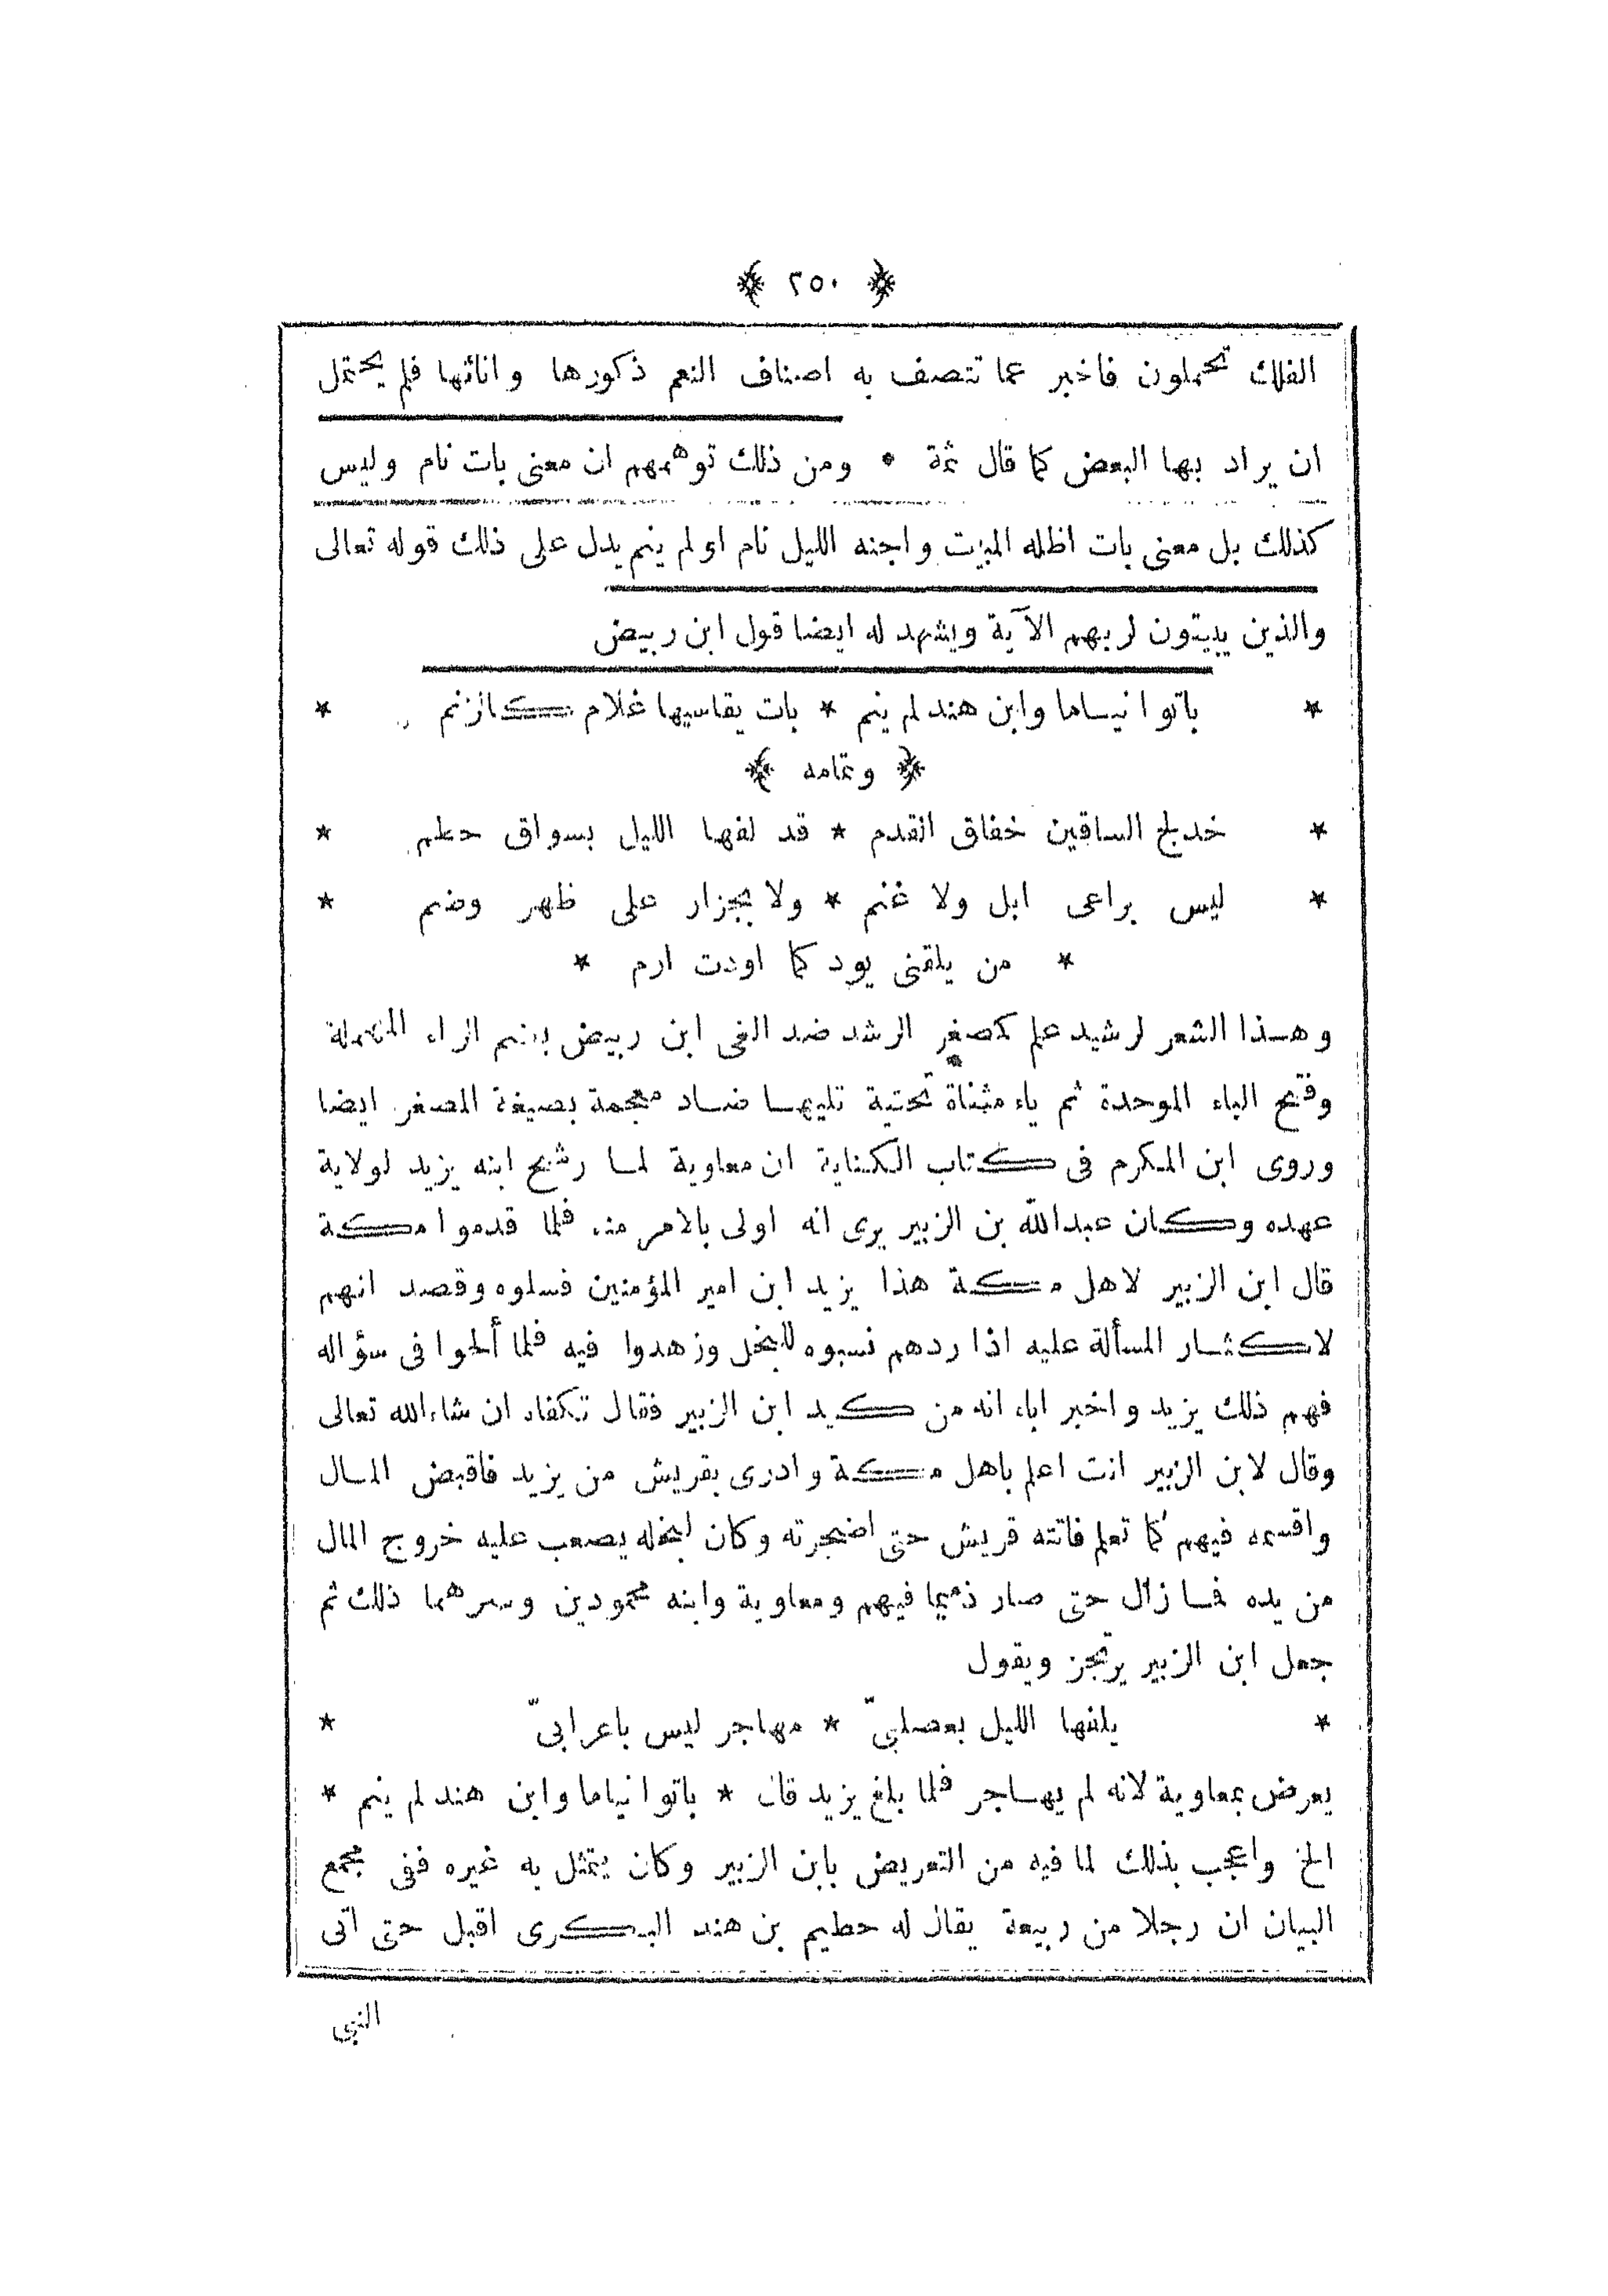 ﴿ ٢٥٠ ﴾
الفلك تحملون فاخبر عما تتصف به اصناف النعم ذكورها واناثها فلم يحتمل
ان يراد بها البعض كما قال ثمة * ومن ذلك توهمهم ان معنى بات نام وليس
كذلك بل معنى بات اظله المبيت واجنه الليل نام او لم ينم يدل على ذلك قوله تعالى
والذين يبيتون لربهم الآية ويشهد له ايضا قول ابن ربيض
* باتوا نيساما وابن هند لم ينم * بات يقاسيها غلام كالزلم *
﴿ وتمامه ﴾
* خدلج الساقين خفاق القدم * قد لفها الليل بسواق حطم *
* ليس براعى ابل ولا غنم * ولا بجزار على ظهر وضم *
* من يلقنى يود كما اودت ارم *
وهسذا الشعر لرشيد علم كمصغر الرشد ضد الغى ابن ربيض بضم الراء المهملة
وفتح الباء الموحدة ثم ياء مثناة تحتية تليهسا ضاد معجمة بصيغة المصغر ايضا
وروى ابن المكرم فى كتاب الكناية ان معاوية لما رشح ابنه يزيد لولاية
عهده وكان عبدالله بن الزبير يرى انه اولى بالامر منه فلما قدموا مكة
قال ابن الزبير لاهل مكة هذا يزيد ابن امير المؤمنين فسلوه وقصد انهم
لاكثار المسألة عليه اذا ردهم نسبوه للبخل وزهدوا فيه فلما ألحوا فى سؤاله
فهم ذلك يزيد واخبر اباه انه من كيد ابن الزبير فقال تكفاه ان شاءالله تعالى
وقال لابن الزبير انت اعلم باهل مكة وادرى بقريش من يزيد فاقبض المال
واقسمه فيهم كما تعلم فاتته قريش حتى اضجرته وكان لبخله يصعب عليه خروج المال
من يده فما زال حتى صار ذميما فيهم ومعاوية وابنه محمودين وسرهما ذلك ثم
جعل ابن الزبير يرتجز ويقول
* يلفها الليل بعصلبىّ * مهاجر ليس باعرابىّ *
يعرض بمعاوية لانه لم يهاجر فلما بلغ يزيد قال * باتوا نياما وابن هند لم ينم *
الخ واعجب بذلك لما فيه من التعريض بابن الزبير وكان يتمثل به غيره ففى مجمع
البيان ان رجلا من ربيعة يقال له حطيم بن هند البكرى اقبل حتى اتى
النبى